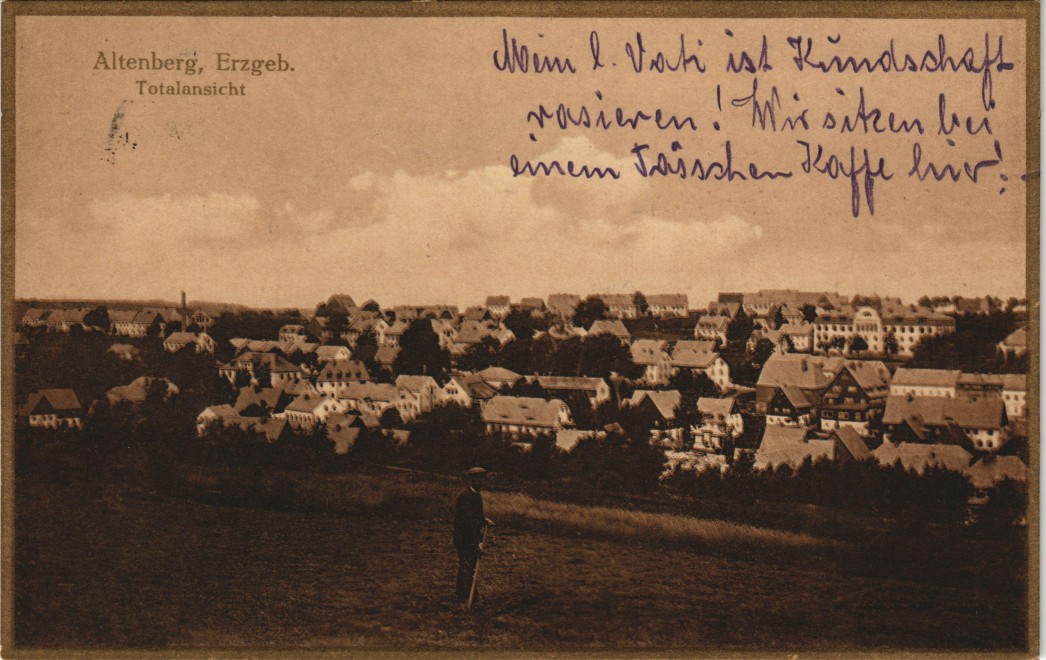 Altenberg, Erzgeb.
Totalansicht
Mein l. Vati ist Kundschaft
rasieren! Wir sitzen bei
einem Tässchen Kaffe hier!